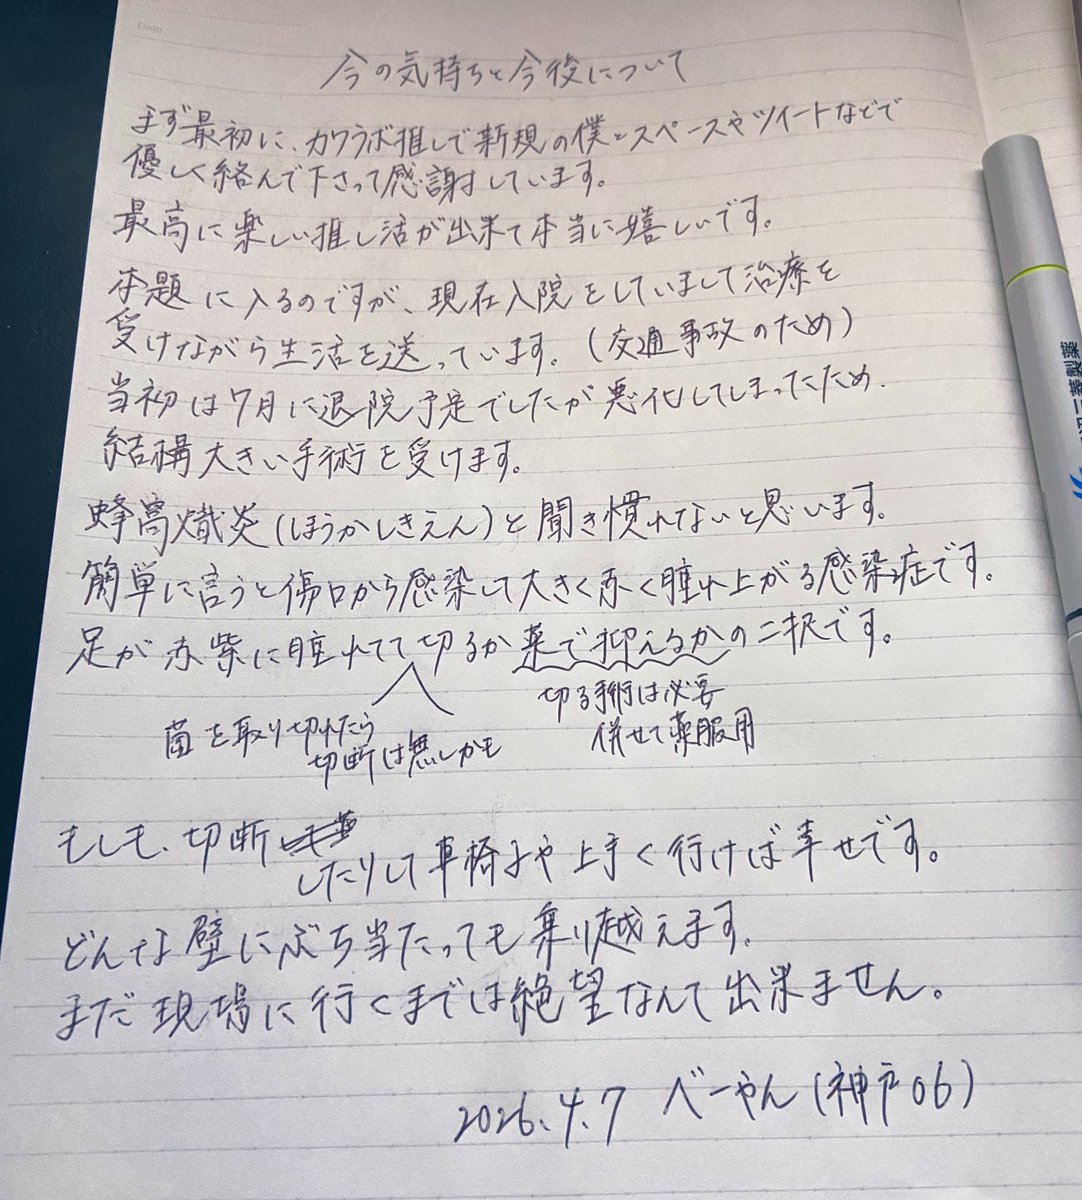 今の気持ちと今後について
まず最初に、カワラボ推しで新規の僕とスペースやツイートなどで
優しく絡んで下さって感謝しています。
最高に楽しい推し活が出来て本当に嬉しいです。
本題に入るのですが、現在入院をしていまして治療を
受けながら生活を送っています。(交通事故のため)
当初は7月に退院予定でしたが悪化してしまったため、
結構大きい手術を受けます。
蜂窩熾炎(ほうかしきえん)と聞き慣れないと思います。
簡単に言うと傷口から感染して大きく赤く腫れ上がる感染症です。
足が赤紫に腫れてて切るか薬で抑えるかの二択です。
菌を取り切れたら
切断は無しかも
切る手術は必要
併せて薬服用
もしも、切断
したりして車椅子や上手く行けば幸せです。
どんな壁にぶち当たっても乗り越えます。
まだ現場に行くまでは絶望なんて出来ません。
2026.4.7 べーやん(神戸06)
三菱製薬